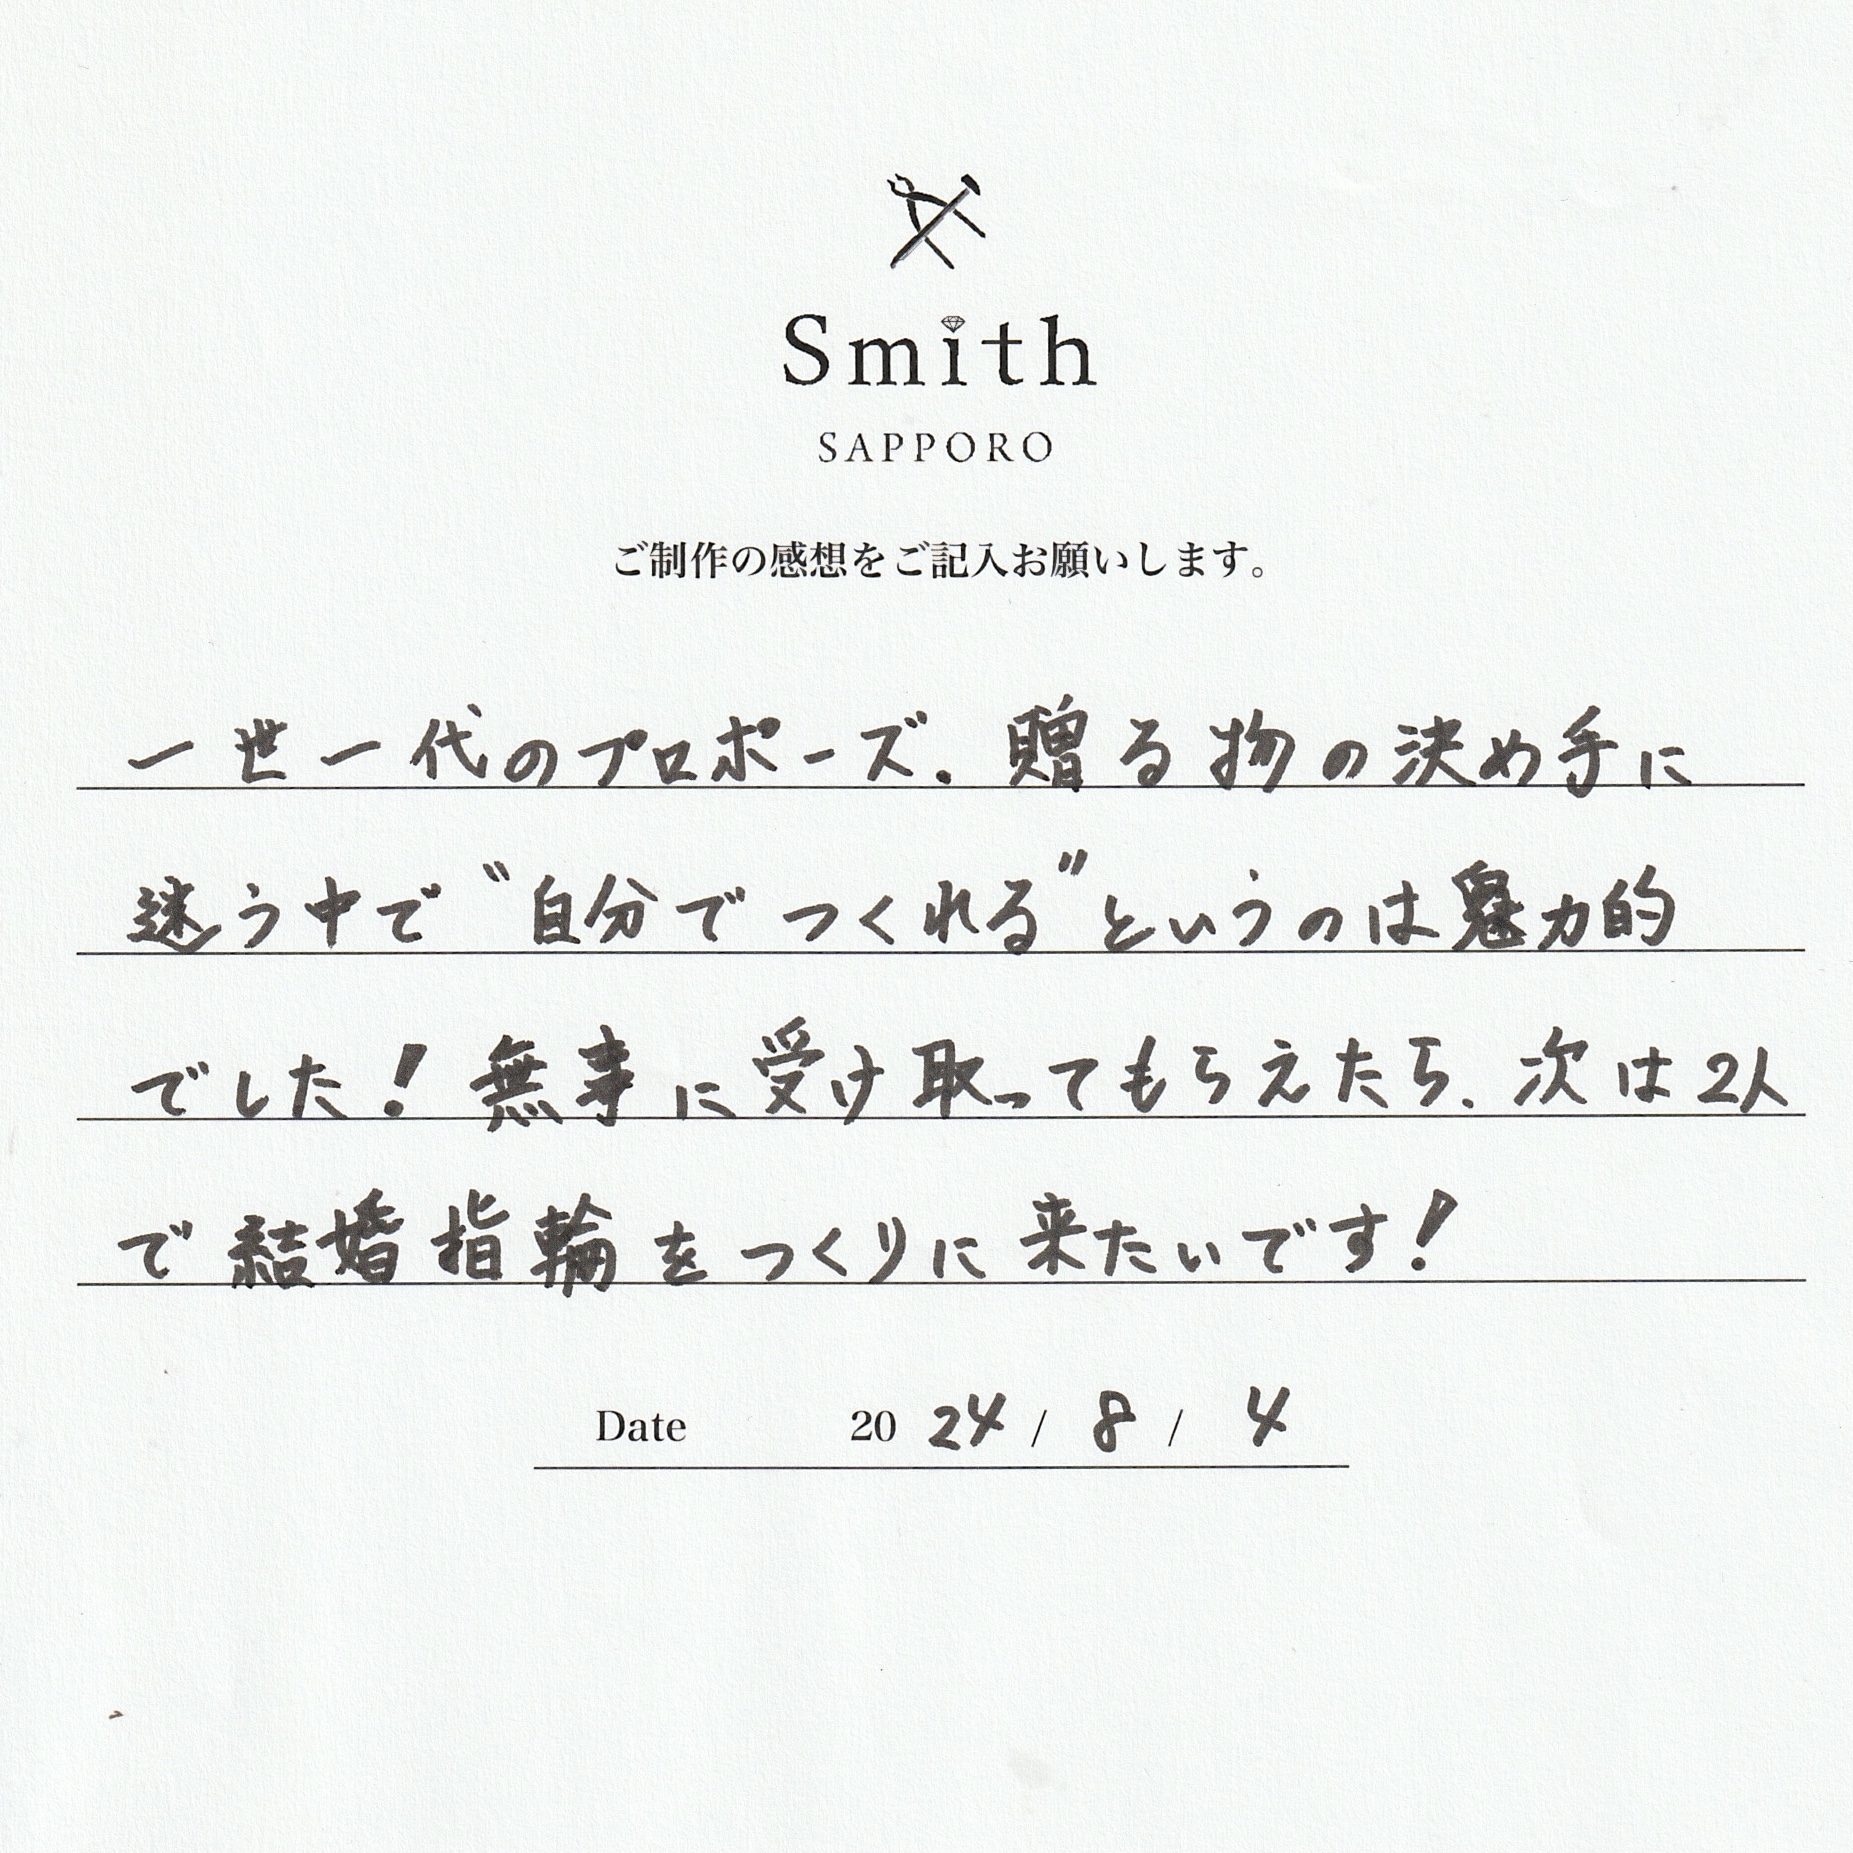 Smith
SAPPORO
ご制作の感想をご記入お願いします。
一世一代のプロポーズ。贈る物の決め手に
迷う中で"自分でつくれる"というのは魅力的
でした!無事に受け取ってもらえたら、次は2人
で結婚指輪をつくりに来たいです!
Date 2024/8/4